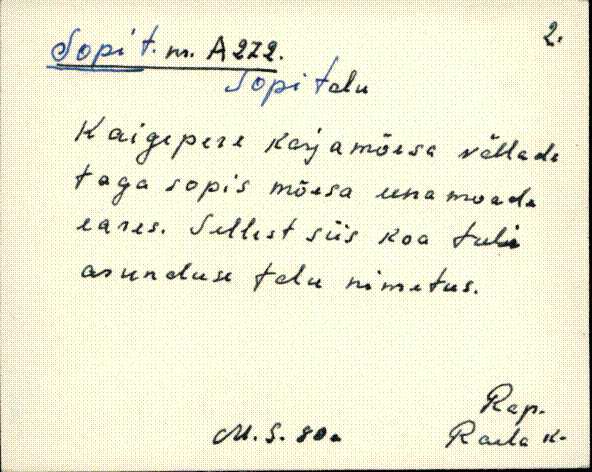 2.
Sopi t. m. A 272.
Sopi talu
Kaigepere karjamõesa vällade
taga sopis mõesa eenamoade
eares. Sellest siis koa tuli
asunduse talu nimetus.
Rap.
M. S. 80a Raela k.